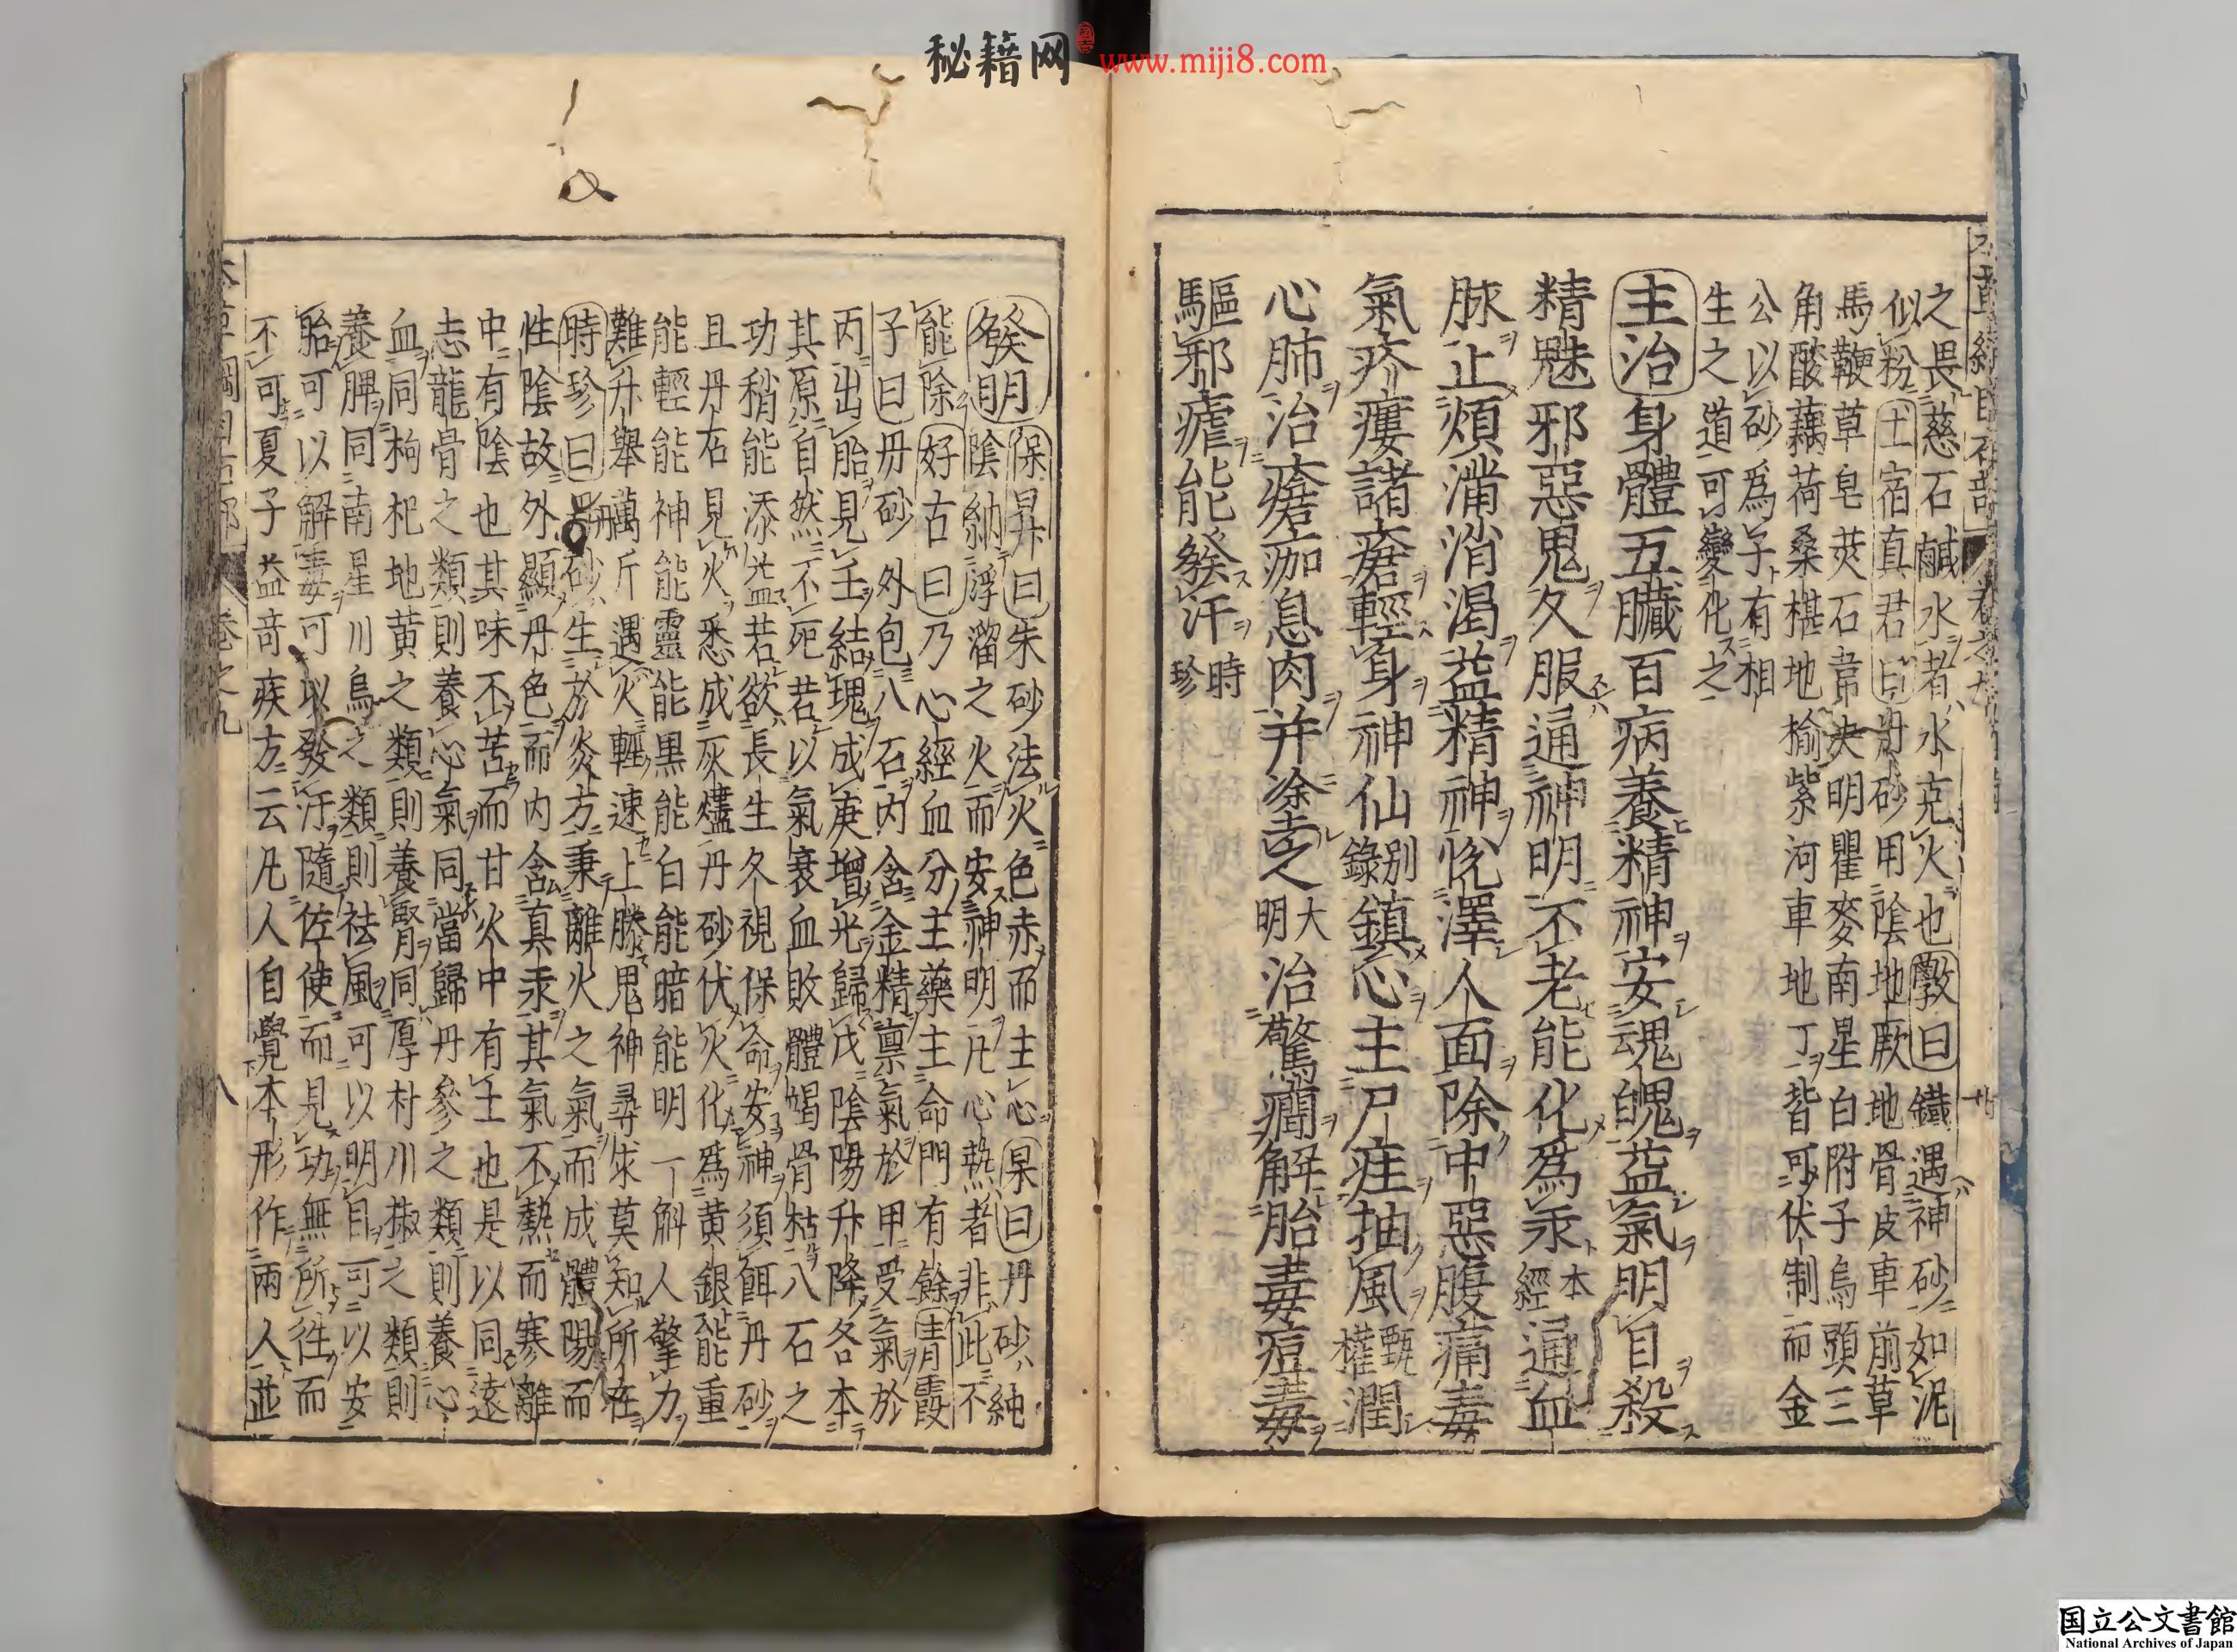 秘籍网 www.miji8.com
之畏慈石鹹水者水克火也斅曰鐵遇神砂如泥
似粉土宿真君曰丹砂用陰地厥地骨皮車前草
馬鞭草皂莢石韋決明瞿麥南星白附子烏頭三
角酸藕荷桑椹地榆紫河車地丁皆可伏制而金
公以砂爲子有相
生之道可變化之
主治身體五臟百病養精神安魂魄益氣明目殺
精魅邪惡鬼久服通神明不老能化爲汞本經通血
脉止煩滿消渴益精神恱澤人面除中惡腹痛毒
氣疥瘻諸瘡輕身神仙别錄鎮心主尸疰抽風甄權潤
心肺治瘡痂息肉并塗之大明治驚癇解胎毒痘毒
驅邪瘧能發汗時珍
發明保昇曰朱砂法火色赤而主心杲曰丹砂純
陰納浮溜之火而安神明凡心熱者非此不
能除好古曰乃心經血分主藥主命門有餘青霞
子曰丹砂外包八石内含金精禀氣於甲受氣於
丙出胎見壬結塊成庚增光歸戊陰陽升降各本
其原自然不死若以氣衰血敗體竭骨枯八石之
功稍能添益若欲長生久視保命安神須餌丹砂
且丹石見火悉成灰燼丹砂伏火化爲黄銀能重
能輕能神能靈能黒能白能暗能明一斛人擎力
難升舉萬斤遇火輕速上騰鬼神尋求莫知所在
時珍曰丹砂生於炎方秉離火之氣而成體陽而
性陰故外顯丹色而内含真汞其氣不熱而寒離
中有陰也其味不苦而甘火中有土也是以同遠
志龍骨之類則養心氣同當歸丹參之類則養心
血同枸杞地黄之類則養腎同厚朴川椒之類則
養脾同南星川烏之類則祛風可以明目可以安
胎可以解毒可以發汗隨佐使而見功無所徃而
不可夏子益竒疾方云凡人自覺本形作兩人並
卷之九
八
国立公文書館
National Archives of Japan